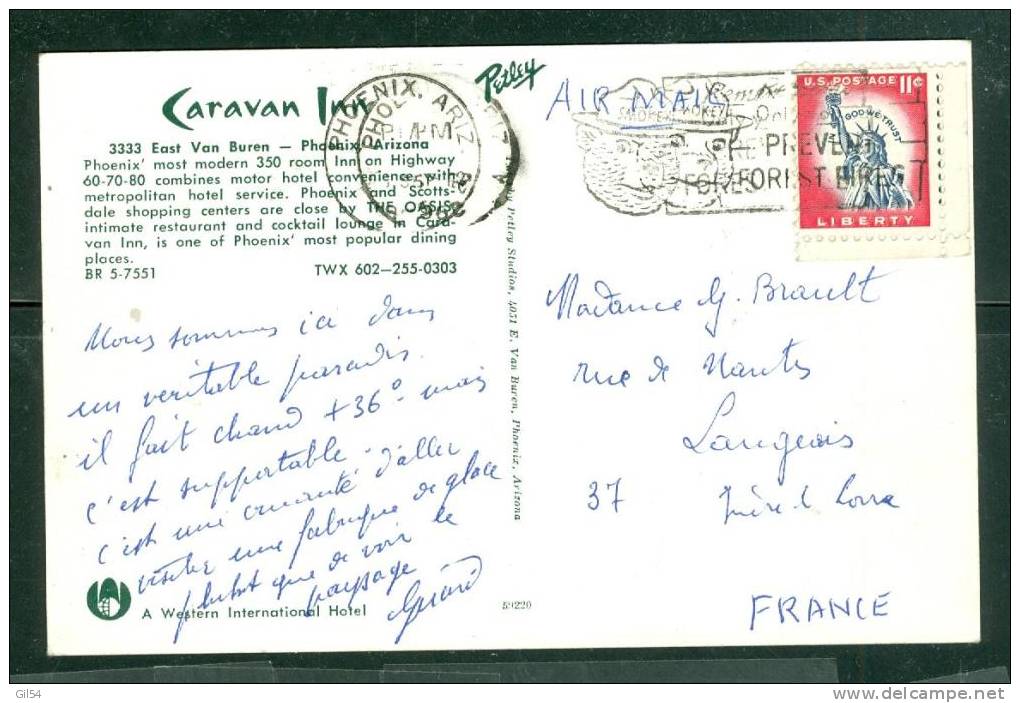 Caravan Inn
3333 East Van Buren — Phoenix, Arizona
Phoenix' most modern 350 room Inn on Highway
60-70-80 combines motor hotel convenience with
metropolitan hotel service. Phoenix and Scotts-
dale shopping centers are close by THE OASIS,
intimate restaurant and cocktail lounge in Cara-
van Inn, is one of Phoenix' most popular dining
places.
BR 5-7551 TWX 602—255-0303
Nous sommes ici dans
un veritable paradis.
il fait chaud +36° mais
c'est supportable.
c'est une cruauté d'aller
visiter une fabrique de glace
plutot que de voir le
paysage
Gérard
A Western International Hotel
59220
Petley
Petley Studios, 4051 E. Van Buren, Phoenix, Arizona
PHOENIX, ARIZ.
PM
AIR MAIL
SMOKEY
PREVENT
FOREST FIRES
U.S. POSTAGE 11¢
IN GOD WE TRUST
LIBERTY
Madame G. Brault
rue de Nantes
Langeais
37 Indre et Loire
FRANCE
Gil54
www.delcampe.net